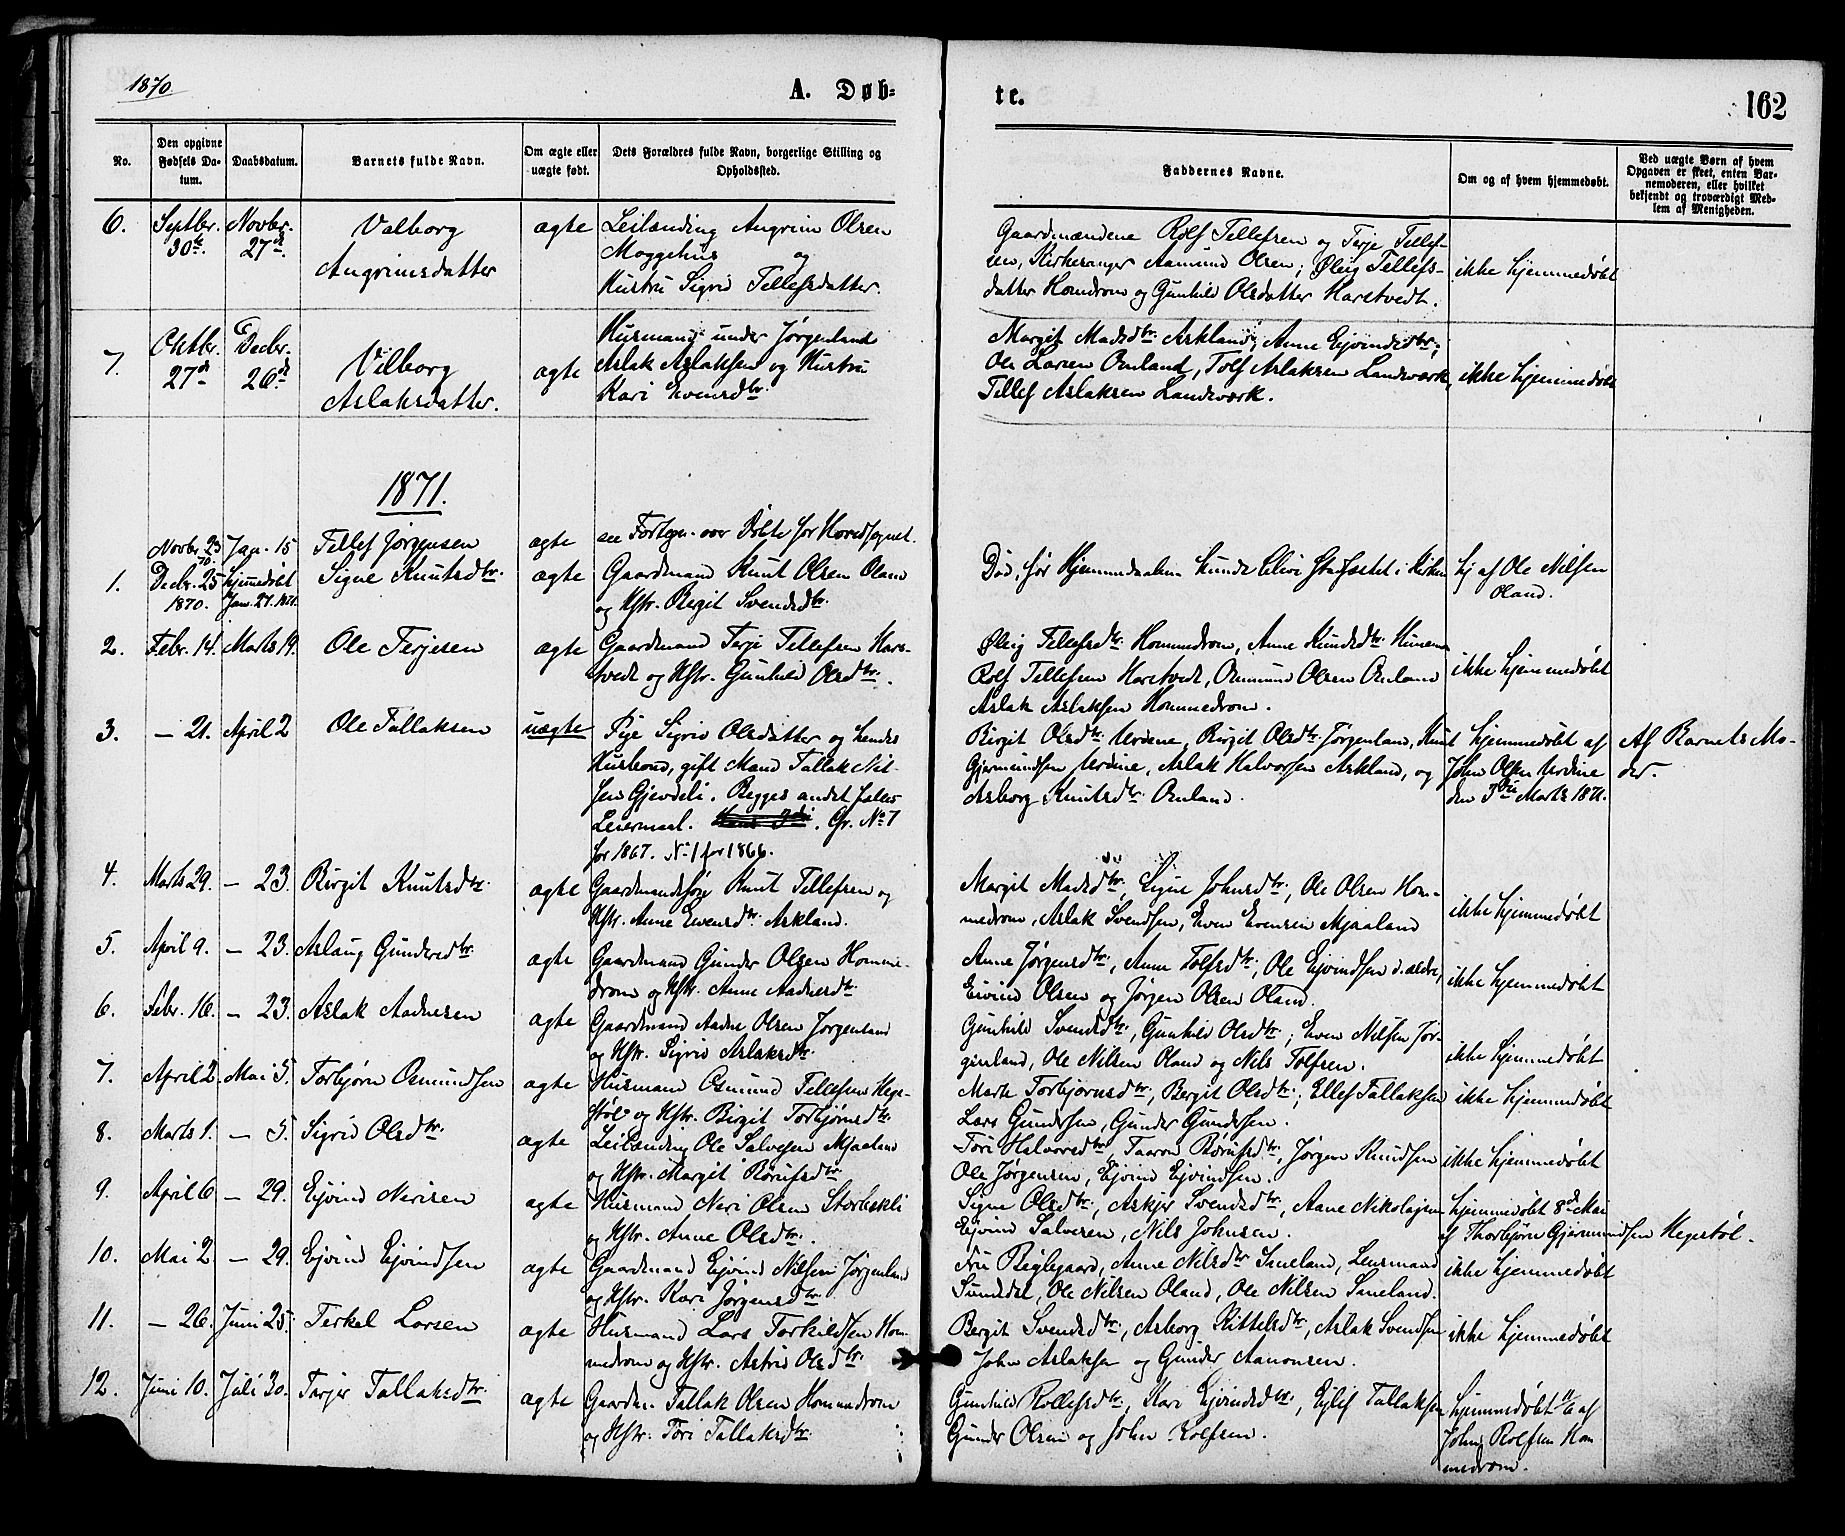 1870.
A. Døb=
te.
162
No.
Den opgivne Fødsels Da-tum.
Daabsdatum.
Barnets fulde Navn.
Om ægte eller uægte født.
Dets Forældres fulde Navn, borgerlige Stilling og Opholdssted.
Faddernes Navne.
Om og af hvem hjemmedøbt.
Ved uægte Børn af hvem Opgaven er skeet, enten Bar-nemoderen, eller hvilket bekjendt og troværdigt Med-lem af Menigheden.
6. Septbr. Novbr. Valborg ægte Leilænding Angrim Olsen
30te 27de Angrimsdatter Moggehus og
Hustru Sigrid Tellefsdatter.
Gaardmændene Rolf Tellefsen og Terje Tellef-
sen, Kirkesanger Aamund Olsen; Øleig Tellefs-
datter Homdrom og Gunhild Olsdatter Harstvedt.
ikke hjemmedøbt
7. Oktbr. Decbr. Vilborg ægte Husmand under Jørgenland
27de 26de Aslaksdatter. Aslak Aslaksen og Hustru
Kari Evensdtr.
Margit Madsdtr. Askland, Anne Ejvindsdtr.,
Ole Larsen Omland, Tolf Aslaksen Landsværk,
Tellef Aslaksen Landsværk.
ikke hjemmedøbt
1871.
Novbr. 23 70. Jan. 15 Tellef Jørgensen ægte see Fortegn. over Døbte for Hovedsognet.
1. Decbr. 25 1870. hjemmedøbt Jan. 27. 1871. Signe Knutsdtr. ægte Gaardmand Knut Olsen Oland
og Hstr. Birgit Svendsdtr.
Død, før Hjemmedaaben kunde blive stadfæstet i Kirken
hj. af Ole Nilsen
Oland.
2. Febr. 14. Marts 19. Ole Terjesen ægte Gaardmand Terje Tellefsen Hars-
tvedt og Hstr. Gunhild Olsdtr.
Øleig Tellefsdtr. Hommedrom, Anne Knudsdtr.
Rolf Tellefsen Harstvedt, Osmund Olsen Omland
Aslak Aslaksen Hommedrom.
ikke hjemmedøbt
3. — 21. April 2 Ole Tallaksen uægte Pige Sigrid Olsdatter og hendes
Husbond, gift Mand Tallak Nil-
sen Gjevdeli. Begges andet fælles
Leiermaal. Cfr. No 7
for 1867. No 1 for 1866.
Birgit Olsdtr. Urdine, Birgit Olsdtr. Jørgenland, Knut
Gjermundsen Urdine, Aslak Halvorsen Askland, og
Asborg Knutsdtr. Omland.
hjemmedøbt af
John Olsen Urdine
den 3die Marts 1871.
Af Barnets Mo-
der.
4. Marts 29. — 23. Birgit Knutsdtr. ægte Gaardmandsføge Knut Tellefsen og
Hstr. Anne Evensdtr. Askland.
Margit Madsdtr., Signe Johnsdtr., Ole Olsen Hom-
medrom, Aslak Svendsen, Even Evensen Mjaaland
ikke hjemmedøbt
5. April 9. — 23. Aslaug Gundersdtr. ægte Gaardmand Gunder Olsen Homme-
drom og Hstr. Anne Aadnesdtr.
Anne Jørgensdtr., Anne Tolfsdtr., Ole Ejvindsen d. ældre,
Eivind Olsen og Jørgen Olsen Oland.
ikke hjemmedøbt
6. Febr. 16. — 23. Aslak Aadnesen ægte Gaardmand Aadne Olsen Jørgenland
og Hstr. Sigrid Aslaksdtr.
Gunhild Svendsdtr., Gunhild Olsdtr., Even Nilsen Jør-
genland, Ole Nilsen Oland og Nils Tolfsen.
ikke hjemmedøbt
7. April 2. Mai 5. Torbjørn Osmundsen ægte Husmand Osmund Tellefsen Hege-
støl og Hstr. Birgit Torbjørnsdtr.
Marte Torbjørnsdtr., Bergit Olsdtr., Ellef Tallaksen
Lars Gundersen, Gunder Gundersen.
ikke hjemmedøbt
8. Marts 1. — 5. Sigrid Olsdtr. ægte Leilænding Ole Salvesen Mjaaland
og Hstr. Margit Rørulfsdtr.
Tori Halvorsdtr., Taaron Rørulfsdtr., Jørgen Knudsen
Ole Jørgensen, Ejvind Ejvindsen.
ikke hjemmedøbt
9. April 6 — 29. Ejvind Nerisen ægte Husmand Neri Olsen Storlekli
og Hstr. Anne Olsdtr.
Signe Olsdtr., Askjer Svendsdtr., Aane Nikolajsen
Ejvind Salvesen, Nils Johnsen.
hjemmedøbt 8de Mai
af Thorbjørn Gjermundsen Hegestøl.
10. Mai 2. — 29. Ejvind Ejvindsen ægte Gaardmand Ejvind Nilsen Jørgenland
og Hstr. Kari Jørgensdtr.
Fru Beglegaard, Anne Nilsdtr. Smeland, Lensmand
Svendsen, Ole Nilsen Oland, Ole Nilsen Smeland.
ikke hjemmedøbt
11. — 26. Juni 25. Terkel Larsen ægte Husmand Lars Torkildsen Hom-
medrom og Hstr. Astrid Olsdtr.
Bergit Svendsdtr., Asborg Kittelsdtr., Aslak Svendsen
John Aslaksen og Gunder Aanonsen.
ikke hjemmedøbt
12. Juni 10. Juli 30. Tarjer Tallaksdtr. ægte Gaardm. Tallak Olsen Hommedrom
og Hstr. Tori Tallaksdtr.
Gunhild Rollefsdtr., Kari Ejvindsdtr., Ejlef Tallaksen
Gunder Olsen og John Rolfsen.
hjemmedøbt 11/6 af
John Rolfsen Hom
medrom.